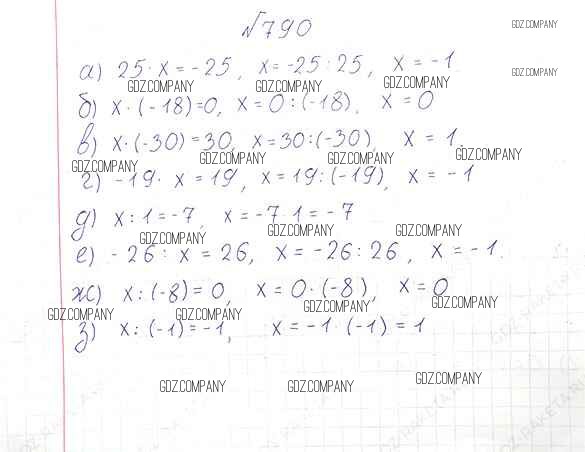 №790
GDZ.COMPANY
а) 25 · x = -25, x = -25 : 25, x = -1
GDZ.COMPANY
GDZ.COMPANY GDZ.COMPANY GDZ.COMPANY
б) x · (-18) = 0, x = 0 : (-18), x = 0
в) x · (-30) = 30, x = 30 : (-30), x = 1.
GDZ.COMPANY GDZ.COMPANY GDZ.COMPANY GDZ.COMPANY
г) -19 · x = 19, x = 19 : (-19), x = -1
д) x : 1 = -7, x = -7 · 1 = -7
GDZ.COMPANY GDZ.COMPANY GDZ.COMPANY
е) -26 : x = 26, x = -26 : 26, x = -1.
ж) x : (-8) = 0, x = 0 · (-8), x = 0
GDZ.COMPANY GDZ.COMPANY GDZ.COMPANY GDZ.COMPANY
з) x : (-1) = -1, x = -1 · (-1) = 1
GDZ.COMPANY GDZ.COMPANY GDZ.COMPANY